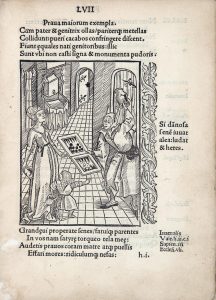 LVII
Praua maiorum exempla.
Cum pater & genitrix ollas/pariterq; metellas
Collidunt: pueri cacabos confringere discunt.
Fiunt equales nati genitoribus: illic
Sunt vbi non casti signa & monumenta pudoris.
Si dãnosa
senẽ iuuat
alea: ludat
& heres.
Grandęui properate senes/ satuiq; parentes
In vos nam satyrę torqueo tela meę:
Audetis prauos coram matre atq; puellis
Effari mores: ridiculumq; nefas:
Iuuenalis
h.i.